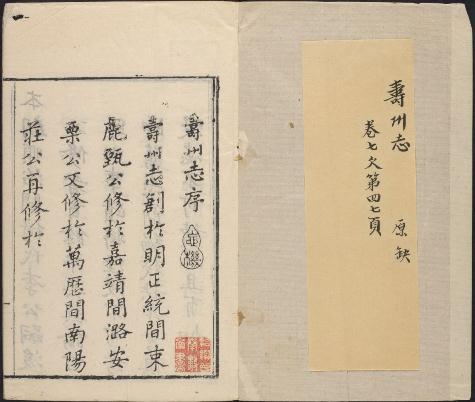 壽州志 原缺
卷七欠第四七頁
壽州志序
壽州志創於明正統間東
鹿甄公修於嘉靖間潞安
栗公又修於萬歷間南陽
莊公再修於